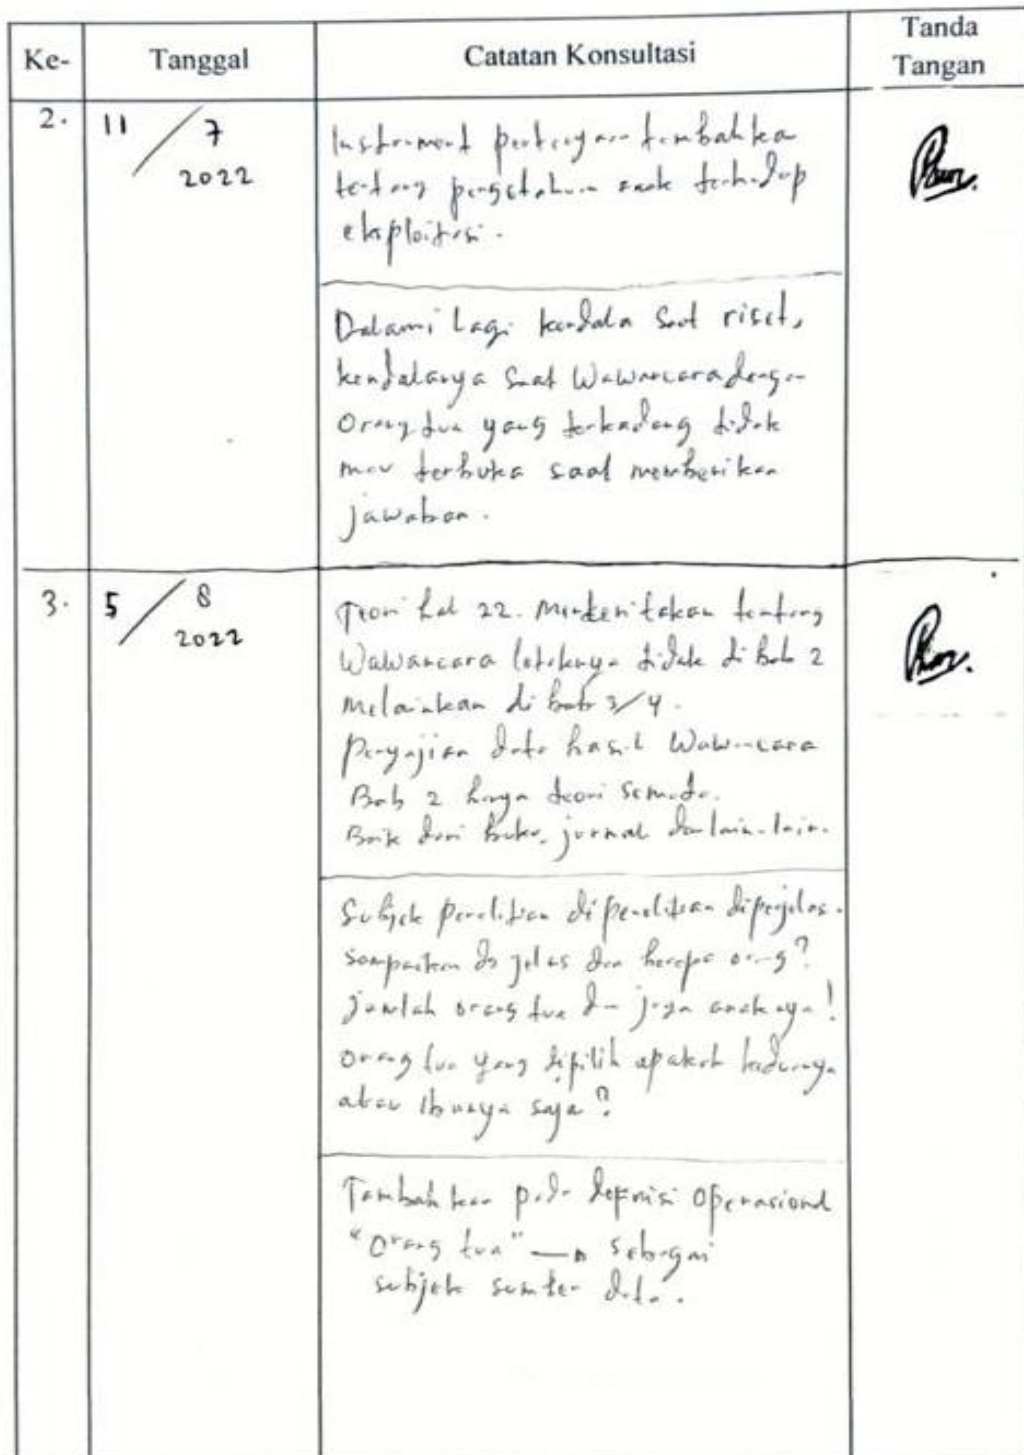 Ke-
Tanggal
Catatan Konsultasi
Tanda
Tangan
2.
11 / 7
2022
Instrument pertanyaan tambahka
tentang pengetahuan anak terhadap
eksploitasi.
Dalami lagi kendala saat riset,
kendalanya saat Wawancara dengan
Orang tua yang terkadang tidak
mau terbuka saat memberikan
jawaban.
3.
5 / 8
2022
Teori hal 22. Menceritakan tentang
Wawancara letaknya tidak di Bab 2
Melainkan di bab 3/4.
Penyajian data hasil Wawancara
Bab 2 hanya teori semata.
Baik dari buku, jurnal dan lain-lain.
Subjek penelitian di penelitian diperjelas.
sampaikan dg jelas dan berapa orang?
jumlah orang tua dan juga anaknya!
orang tua yang dipilih apakah keduanya
atau Ibunya saja?
Tambahkan pada definisi Operasional
"Orang tua" → sebagai
subjek sumber data.